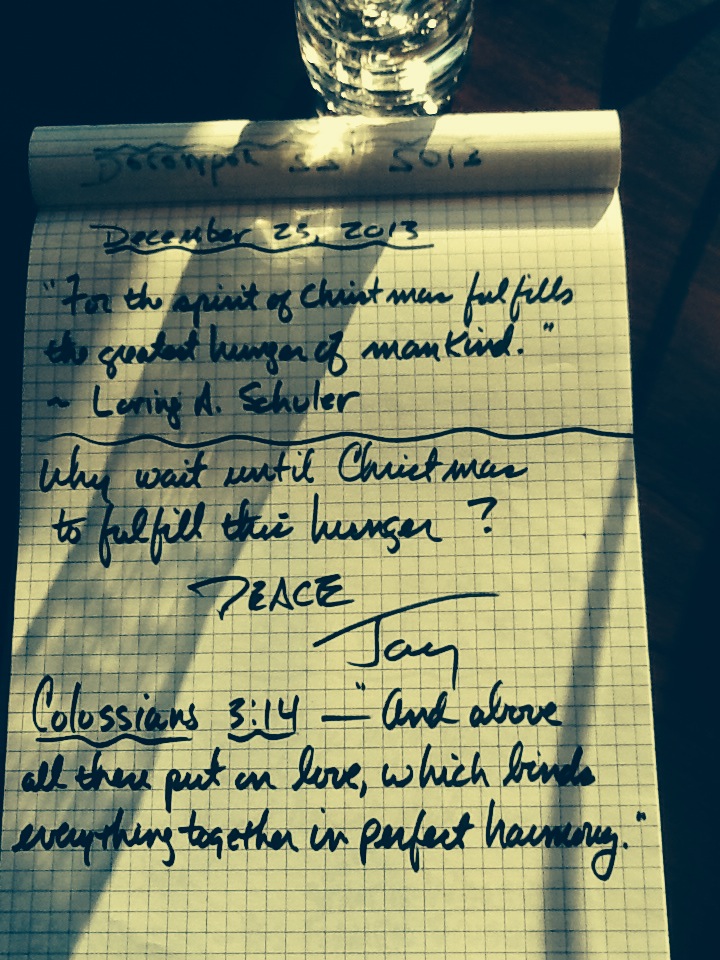 December 25, 2013
"For the spirit of Christmas fulfills
the greatest hunger of mankind."
~ Loring A. Schuler
Why wait until Christmas
to fulfill this hunger?
PEACE
Jay
Colossians 3:14 — "And above
all these put on love, which binds
everything together in perfect harmony."